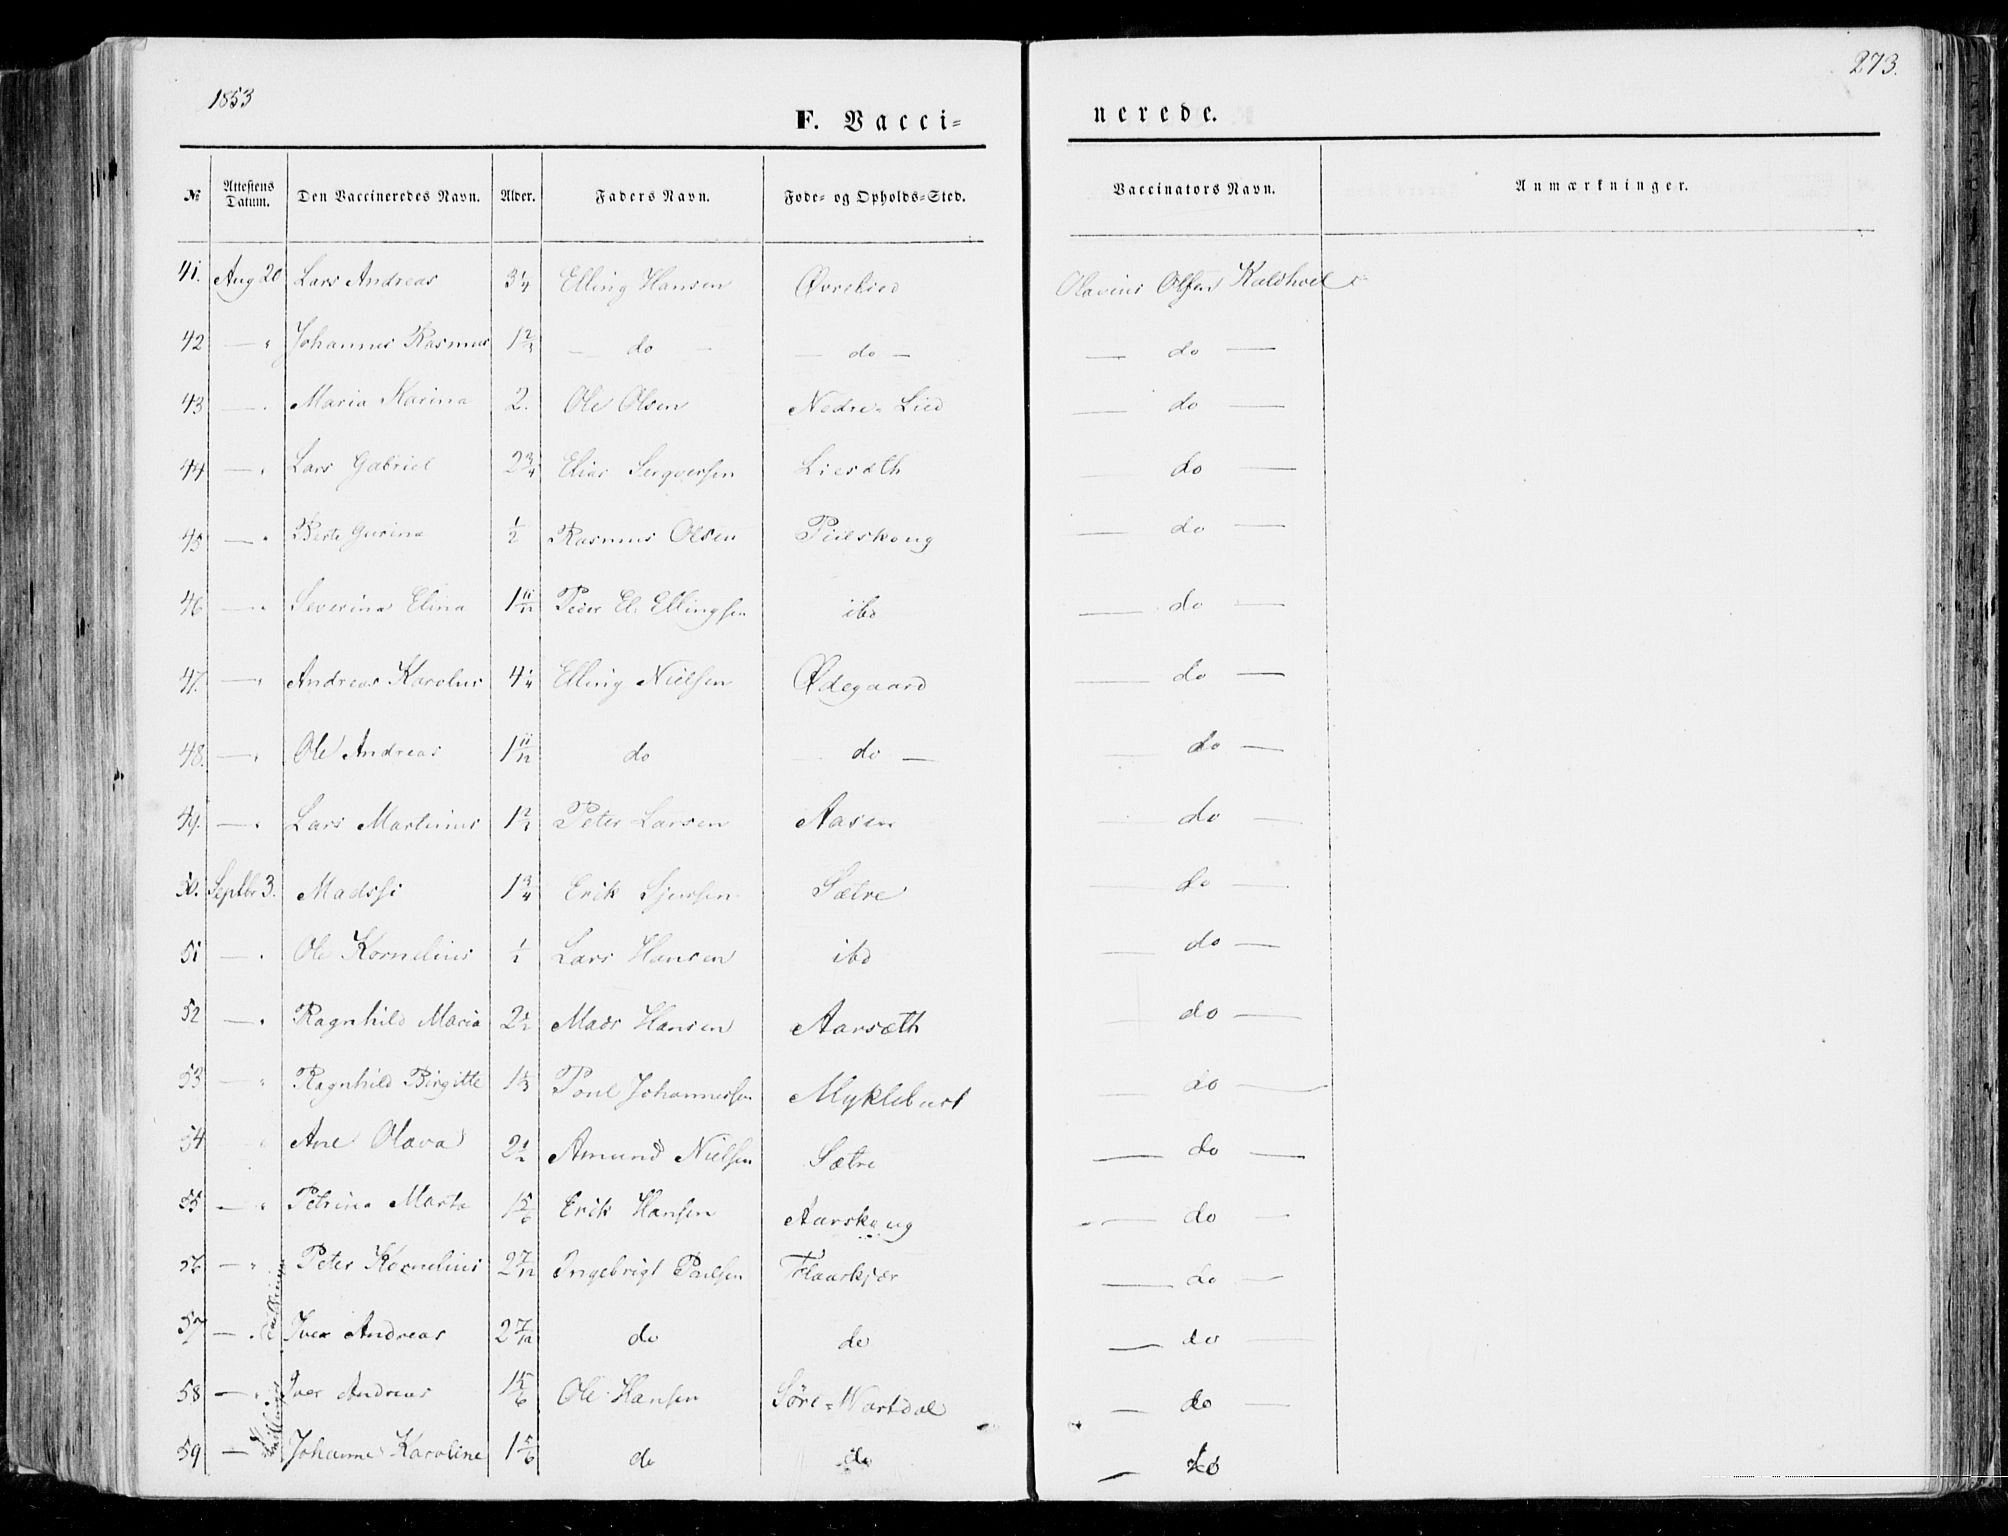 1853
273.
F. Vacci=
nerede.
№ Attestens Datum. Den Vaccineredes Navn. Alder. Faders Navn. Føde- og Opholds-Sted. Vaccinators Navn. Anmærkninger.
41. Aug 20 Lars Andreas 3 1/4 Elling Hansen Øvrelied Olavius Olsen Kaldhoel
42 — " Johannes Rasmus 1 2/3 — do — — do — — do —
43 — " Maria Karina 2. Ole Olsen Nedre-Lied — do —
44 — " Lars Gabriel 2 3/4 Elias Seqversen Liesæth — do —
45 — " Berte Gurina 1/2 Rasmus Olsen Pilskoug — do —
46 — " Severina Elina 1 11/12 Peder El: Ellingsen ibd — do —
47. — " Andreas Karolus 4 1/4 Elling Nielsen Ødegaard — do —
48. — " Ole Andreas 1 11/12 do — do — — do —
49. — " Lars Martinus 1 2/3 Peter Larsen Aasen — do —
50. Septbr 3. Madssi 1 3/4 Erik Sjursen Sætre — do —
51 — " Ole Kornelius Lars Hansen ibd — do —
52 — " Ragnhild Maria 2 1/2 Mads Hansen Aarsæth — do —
53 — " Ragnhild Birgitte Poul Johannessen Myklebust — do —
54 " Ane Olava 2 1/2 Amund Nielsen Sætre — do —
55 — " Petrina Marta 1 5/6 Erik Hansen Aarskoug — do —
56 — " Peter Kornelius 2 7/12 Ingebrigt Poulsen Flaaskjær — do —
57 — " Tvillinger Iver Andreas 2 7/12 do do — do —
58 — " Iver Andreas 1 5/6 Ole Hansen Søre=Wartdal — do —
59 — Tvillinger Johanne Karoline 1 5/6 do do — do